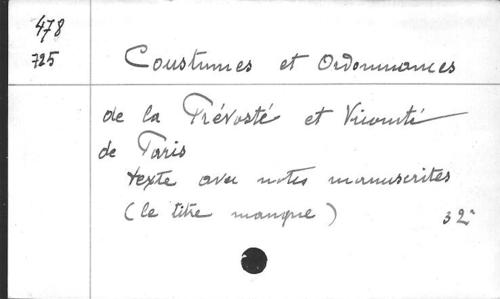 478
725
Coustumes et Ordonnances
de la Prévosté et Vicomté
de Paris
texte avec notes manuscrites
(le titre manque)
32°